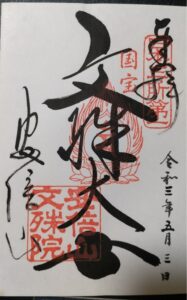 奉拝
国宝
文殊大士
令和三年五月三日
安倍山
安倍山
文殊院